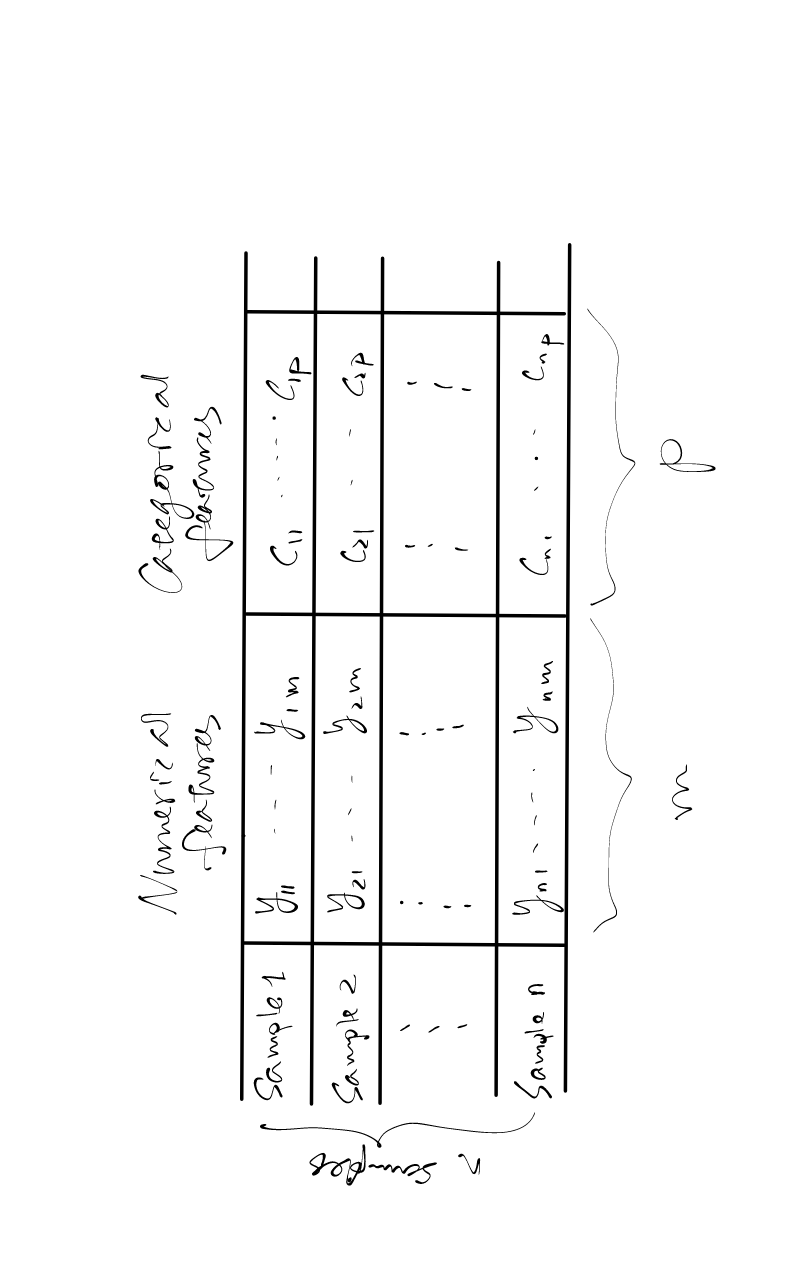 Numerical features Categorical features
Sample 1 y11 ---- y1m C11 ...... C1p
Sample 2 y21 ---- y2m C21 -- C2p
Sample n yn1 ---- ynm Cn1 ... Cnp
n samples
m p